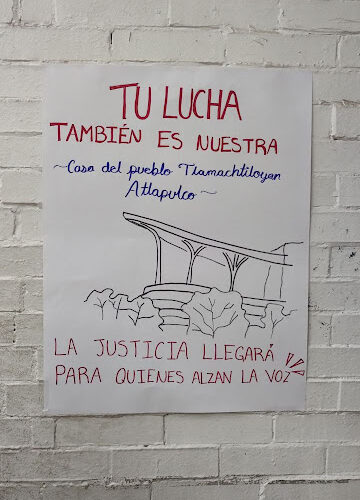 TU LUCHA
TAMBIÉN ES NUESTRA
~Casa del pueblo Tlamachtiloyan
Atlapulco~
LA JUSTICIA LLEGARÁ
PARA QUIENES ALZAN LA VOZ